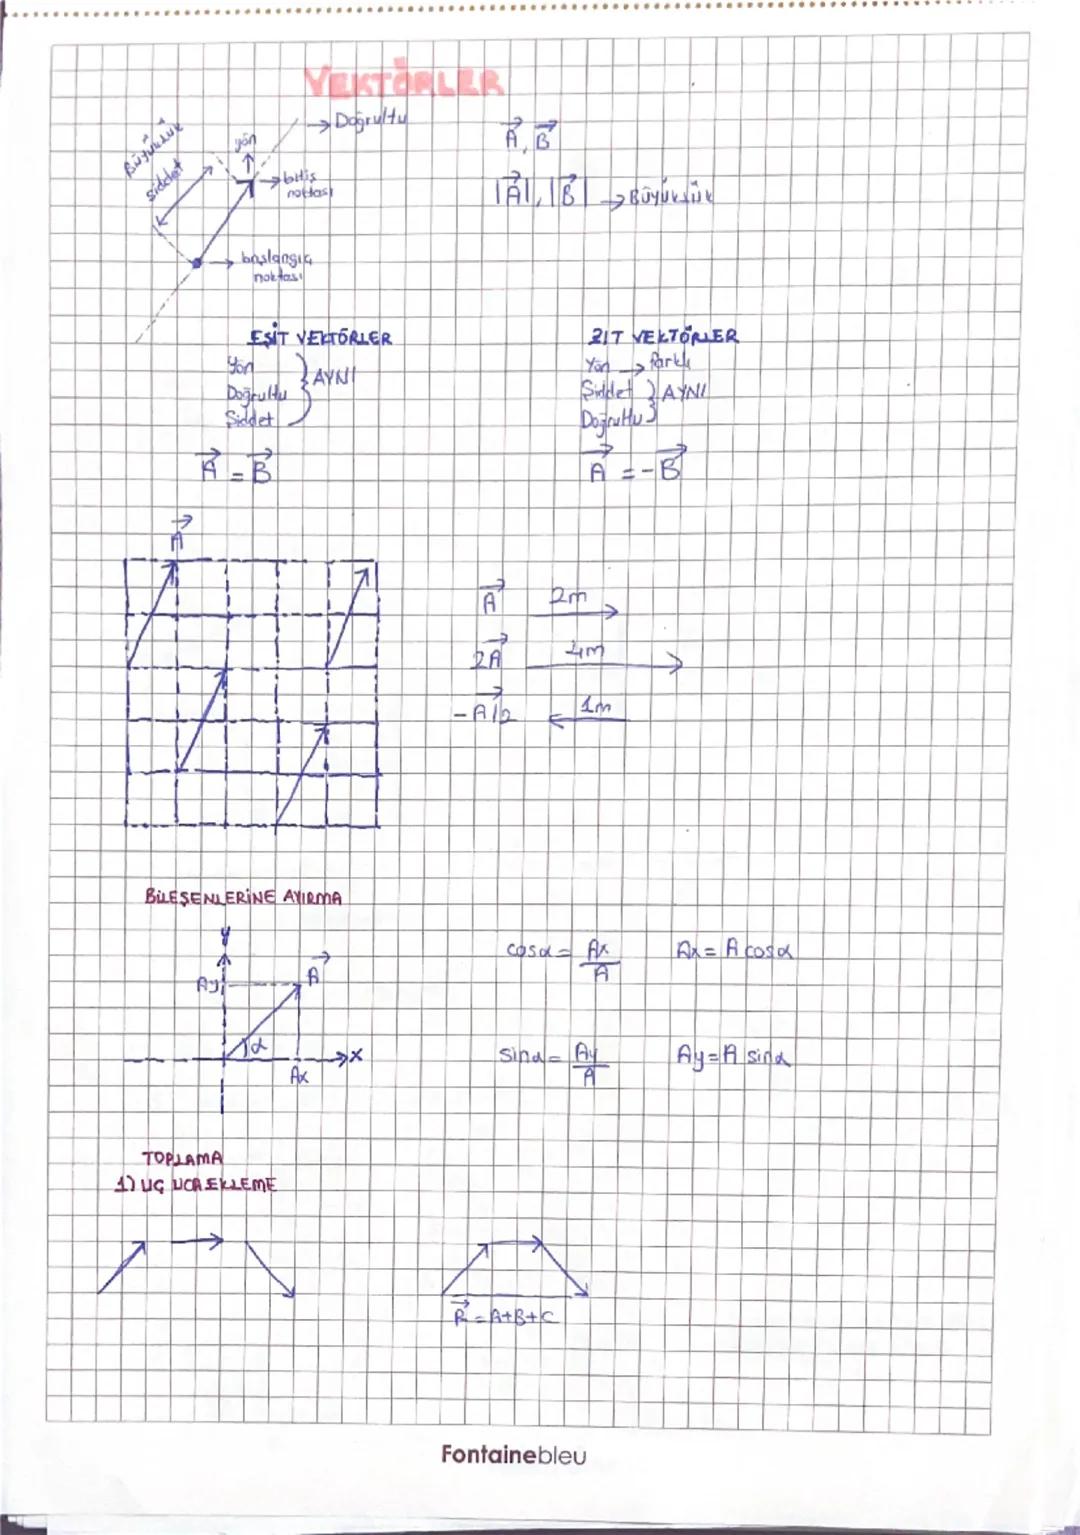 VEKTÖRLER
Büyüklük
şiddet
yön
→ Doğrultu
→ bitiş
noktası
→ başlangıç
noktası
A, B
|A|, |B| → Büyüklük
EŞİT VEKTÖRLER
Yön
Doğrultu
Şiddet
} AYNI
A = B
ZIT VEKTÖRLER
Yön → farklı
Şiddet
Doğrultu
} AYNI
A = -B
A
A 2m
2A 4m
-A/2 1m
BİLEŞENLERİNE AYIRMA
y
Ay
A
α
x
Ax
cosα = Ax/A Ax = A cosα
sinα = Ay/A Ay = A sinα
TOPLAMA
1) UÇ UCA EKLEME
R = A+B+C
Fontainebleu